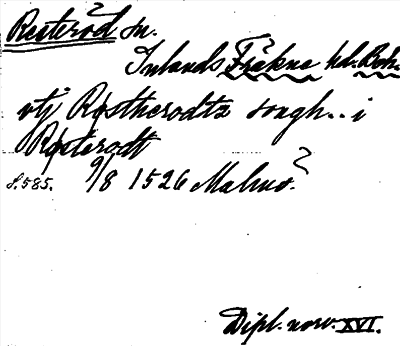 Resteröd sn.
Inlands Fräkne hd. Boh.
vtj Røstherodtz songh.. i
Røsterodt
s. 585. 9/8 1526 Malmö?
Dipl. norv. XVI.